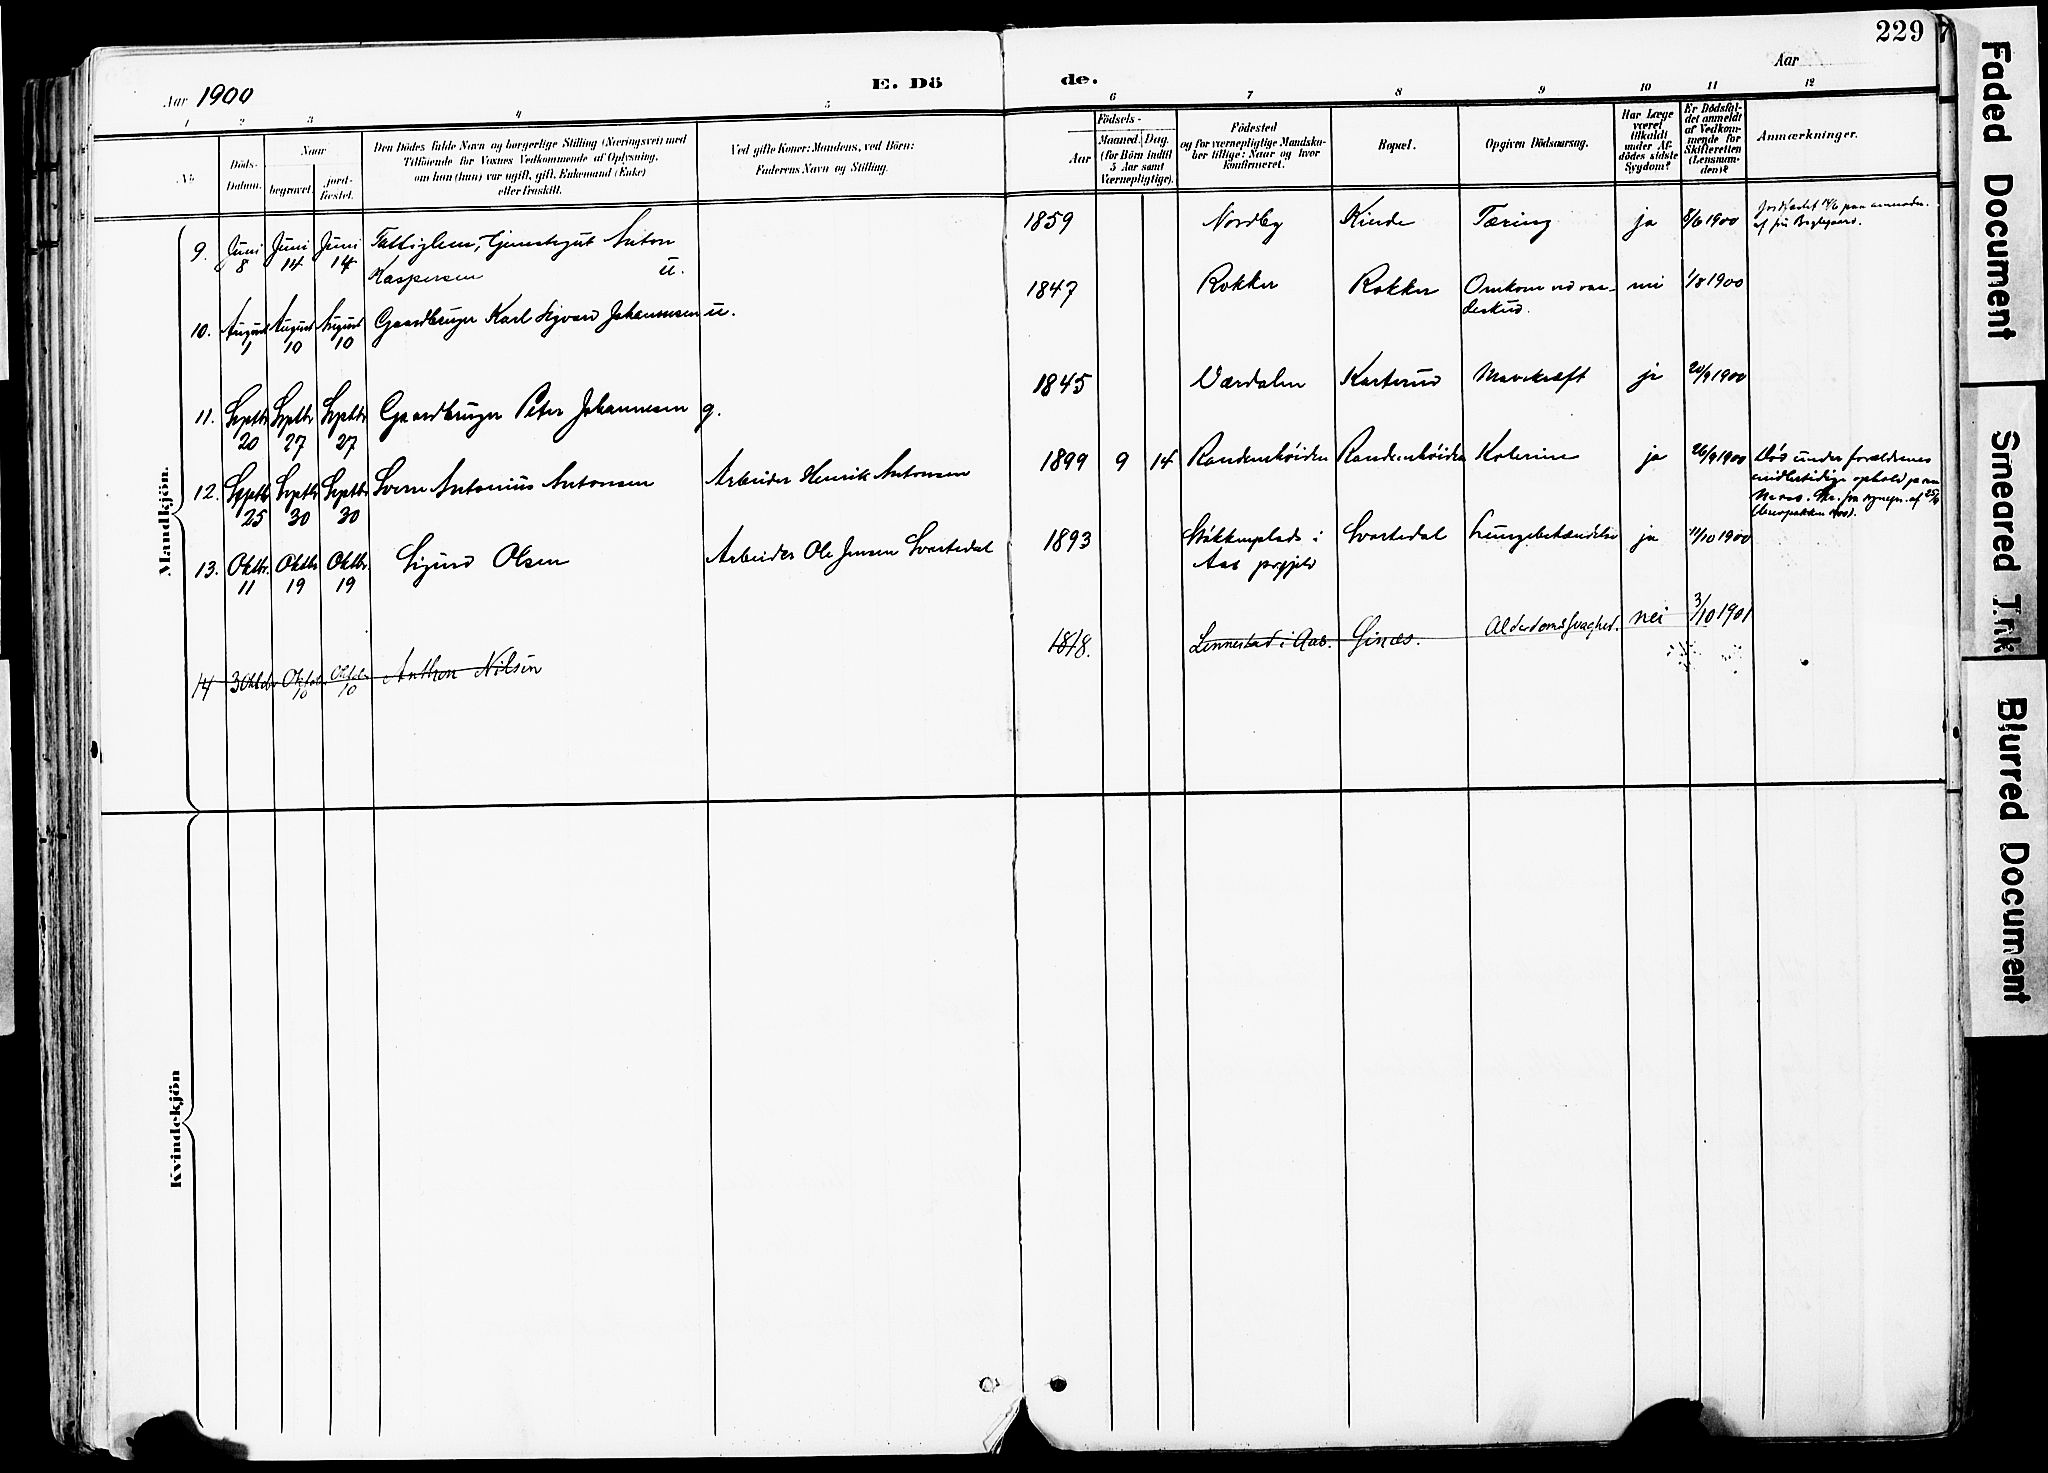 229
Aar 1900
E. Dö de.
Aar
1 2 3 4 5 6 7 8 9 10 11 12
No.
Döds-
Datum.
Naar
begravet.
jord-
fæstet.
Den Dödes fulde Navn og borgerlige Stilling (Næringsvei) med
Tilföiende for Voxnes Vedkommende af Oplysning,
om han (hun) var ugift, gift, Enkemand (Enke)
eller fraskilt.
Ved gifte Koner: Mandens, ved Börn:
Faderens Navn og Stilling.
Födsels-
Aar
Maaned. Dag.
(for Börn indtil
5 Aar samt
Værnepligtige).
Födested
og for værnepligtige Mandska-
ber tillige: Naar og hvor
konfirmeret.
Bopæl.
Opgiven Dödsaarsag.
Har Læge
været
tilkaldt
under Af-
dödes sidste
Sygdom?
Er Dödsfal-
det anmeldt
af Vedkom-
mende for
Skifteretten
(Lensman-
den)?
Anmærkninger.
Mandkjön.
9. Juni 8 Juni 14 Juni 14 Fattiglem, Tjenestegut Anton
Kaspersen u.
1859 Nordby Kinde Tæring ja 8/6 1900
10. August 1 August 10 August 10 Gaardbruger Karl Sigvard Johannesen u.
1847 Rokker Rokker Omkom ved vaa-
deskud. nei 1/8 1900
11. Septbr 20 Septbr 27 Septbr 27 Gaardbruger Peter Johannesen g.
1845 Værdalen Karterud Mavekræft ja 20/9 1900
12. Septbr 25 Septbr 30 Septbr 30 Sverre Antonius Antonsen Arbeider Henrik Antonsen
1899 9 14 Randemhöiden Randemhöiden Kolerine ja 26/9 1900 Död under forældrenes
midlertidige ophold
13. Oktbr. 11 Oktbr 19 Oktbr. 19 Sigurd Olsen Arbeider Ole Jensen Svartedal
1893 Stökkenplads i
Aas prgjeld Svartedal Lungebetændelse ja 11/10 1900
14 3 Oktobr Oktobr 10 Oktobr 10 Anthon Nilsen
1818. Lennestad i Aas. Ginæs. Alderdomssvaghed. nei 3/10 1901
Kvindekjön
Faded Document
Smeared Ink
Blurred Document